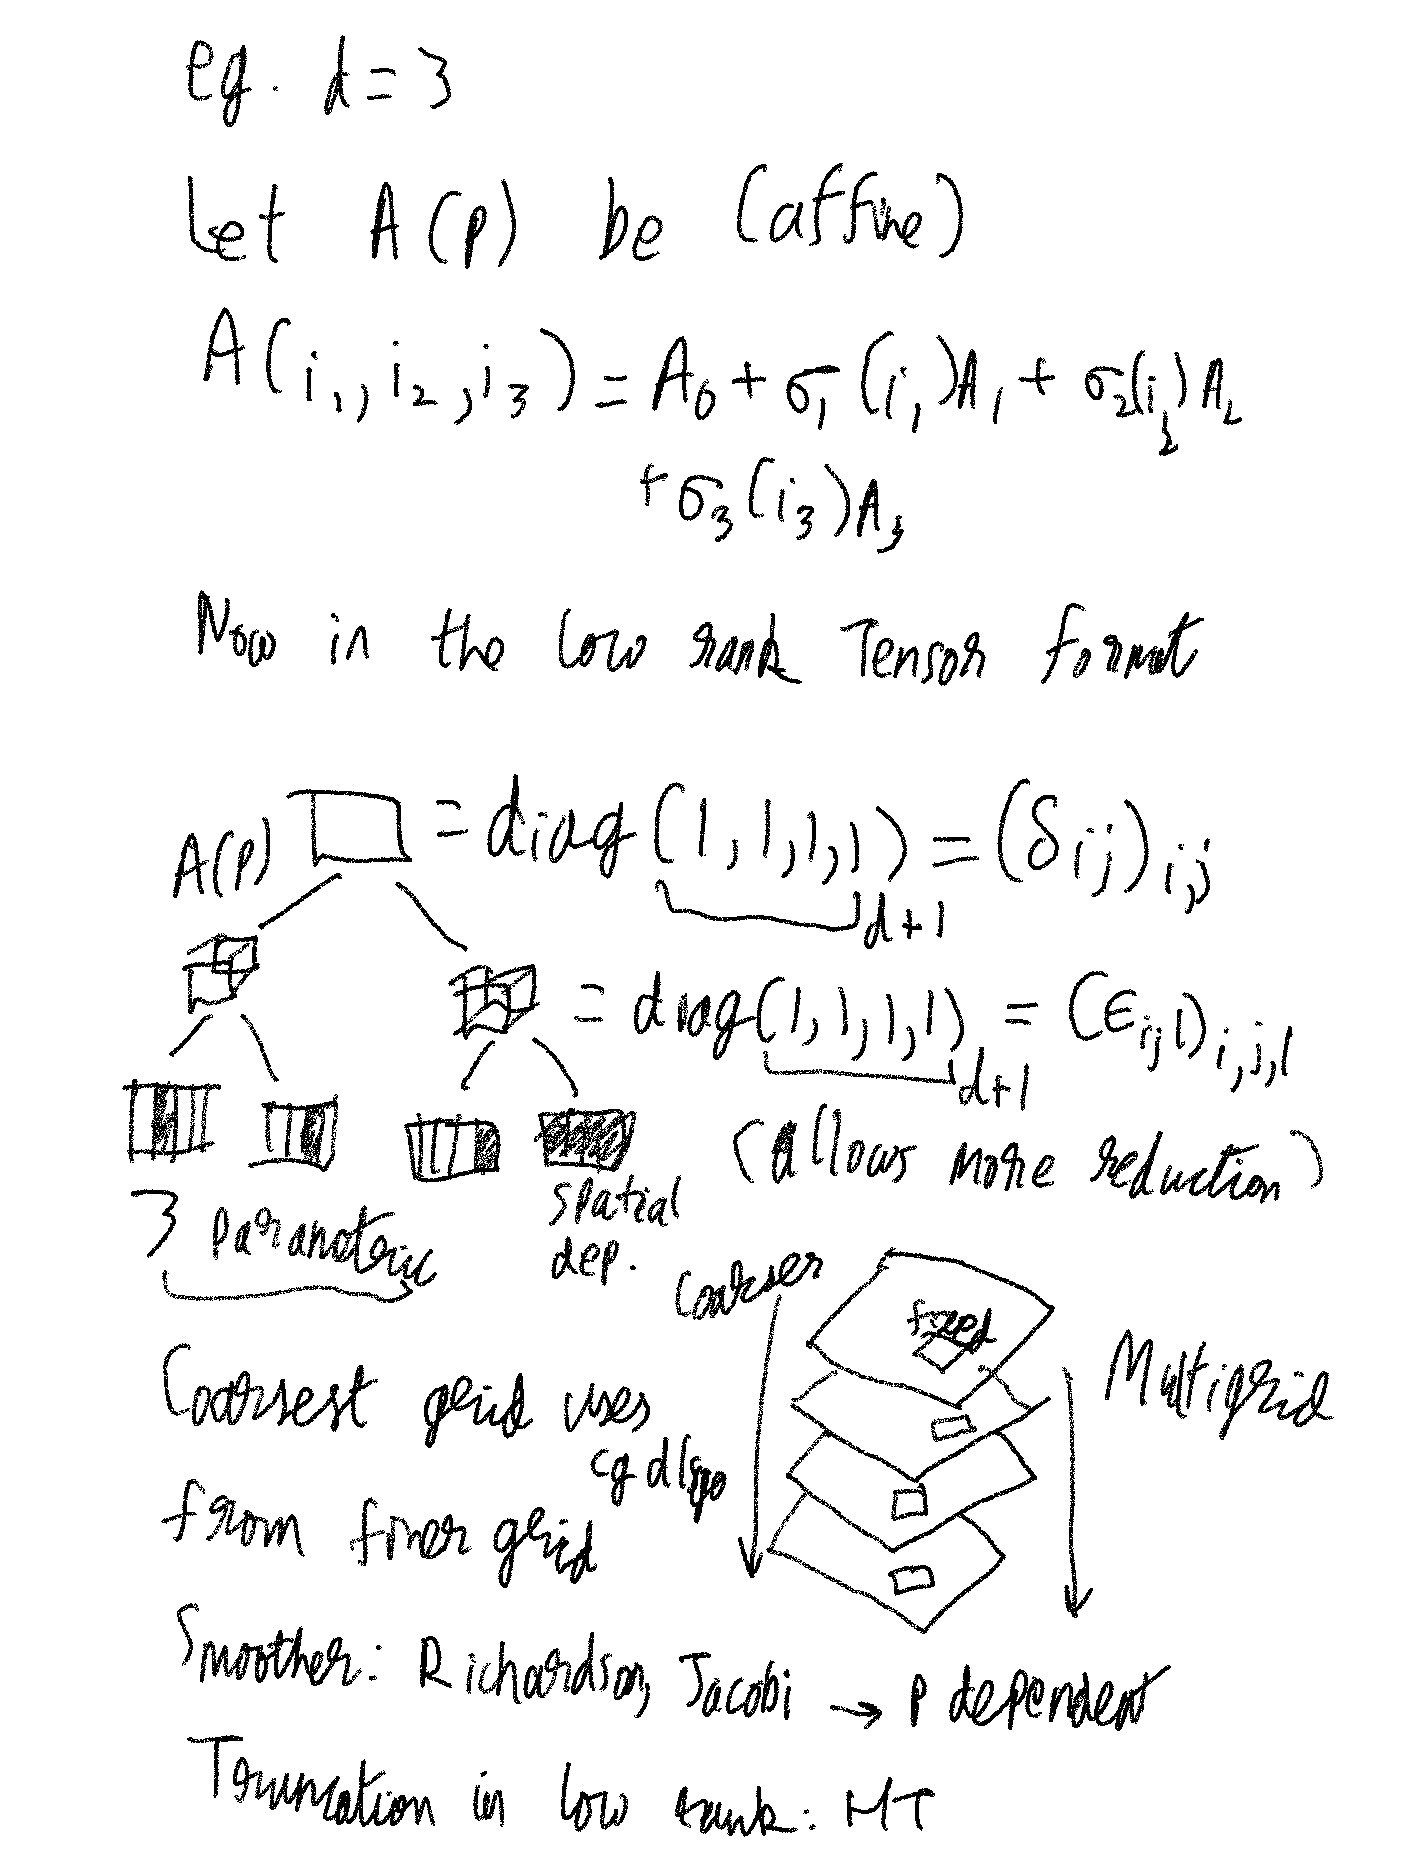 eg. d = 3
Let A(p) be (affine)
A(i₁, i₂, i₃) = A₀ + σ₁(i₁)A₁ + σ₂(i₂)A₂
+ σ₃(i₃)A₃
Now in the low rank Tensor format
A(p) = diag(1,1,1,1) = (δij)i,j
d+1
= diag(1,1,1,1) = (ϵijl)i,j,l
d+1
(allows more reduction)
3 parametric
spatial
dep.
coarser
fixed
Multigrid
Coarsest grid uses
cg
from finer grid
Smoother: Richardson, Jacobi → p dependent
Truncation in low rank: HT